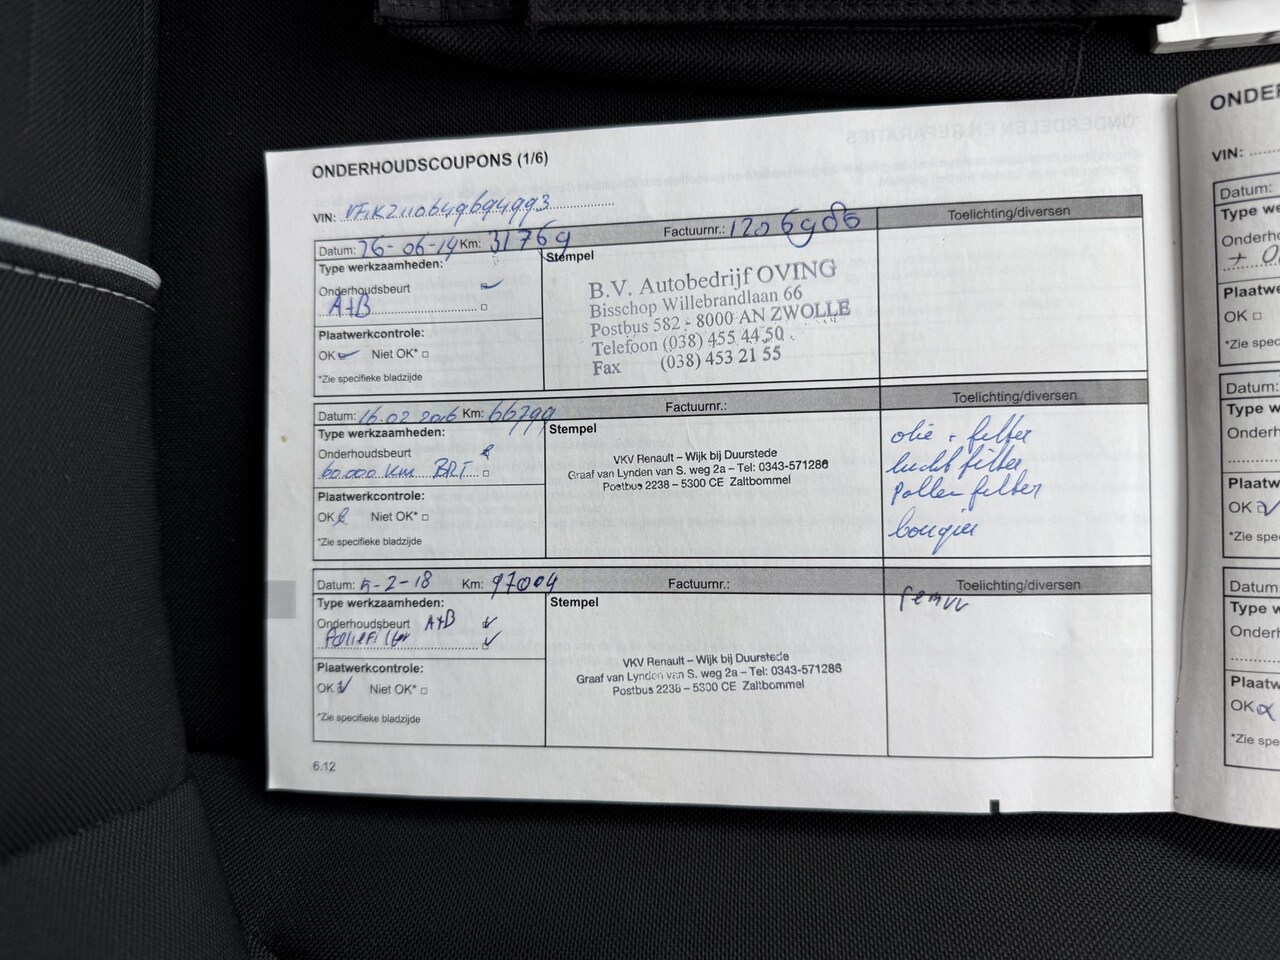 ONDERHOUDSCOUPONS (1/6)
VIN: VF1KZ110649694993
Datum: 26-06-14 Km: 31769 Factuurnr.: 1206986 Toelichting/diversen
Type werkzaamheden: Stempel
Onderhoudsbeurt
A+B
Plaatwerkcontrole:
OK Niet OK*
*Zie specifieke bladzijde
B.V. Autobedrijf OVING
Bisschop Willebrandlaan 66
Postbus 582 - 8000 AN ZWOLLE
Telefoon (038) 455 44 50
Fax (038) 453 21 55
Datum: 16-02-2016 Km: 66799 Factuurnr.: Toelichting/diversen
Type werkzaamheden: Stempel
Onderhoudsbeurt
60.000 km BRT
Plaatwerkcontrole:
OK Niet OK*
*Zie specifieke bladzijde
VKV Renault – Wijk bij Duurstede
Graaf van Lynden van S. weg 2a – Tel: 0343-571286
Postbus 2238 – 5300 CE Zaltbommel
olie + filter
lucht filter
Pollen filter
bougies
Datum: 5-2-18 Km: 97004 Factuurnr.: Toelichting/diversen
Type werkzaamheden: Stempel
Onderhoudsbeurt A+B
Plaatwerkcontrole:
OK Niet OK*
*Zie specifieke bladzijde
VKV Renault – Wijk bij Duurstede
Graaf van Lynden van S. weg 2a – Tel: 0343-571286
Postbus 2238 – 5300 CE Zaltbommel
6.12
VIN:
Datum:
OK
Datum:
OK
Datum:
OK